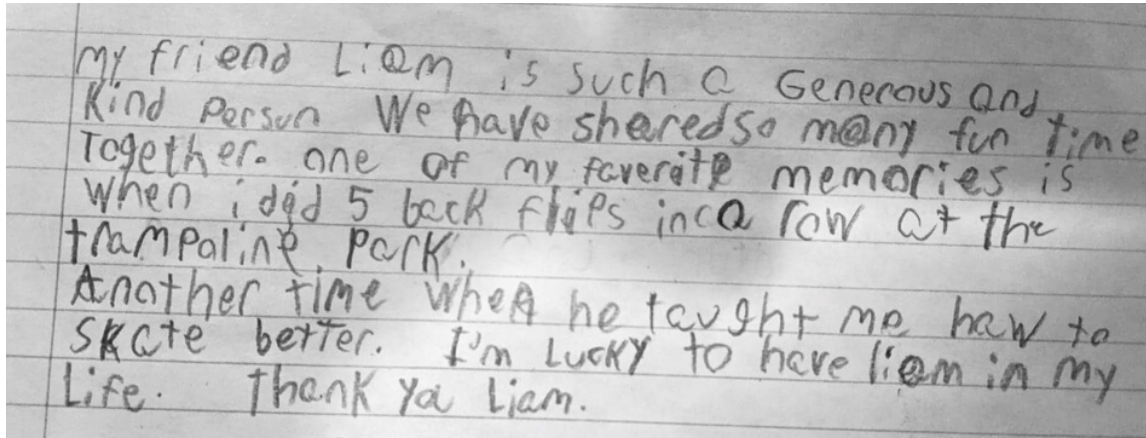 My friend Liam is such a Generous and
Kind Person We have shared so many fun time
Together. one of my faverite memories is
when i did 5 back flips in a row at the
trampaline Park.
Another time when he taught me haw to
Skate better. I'm Lucky to have liam in my
Life. Thank you Liam.